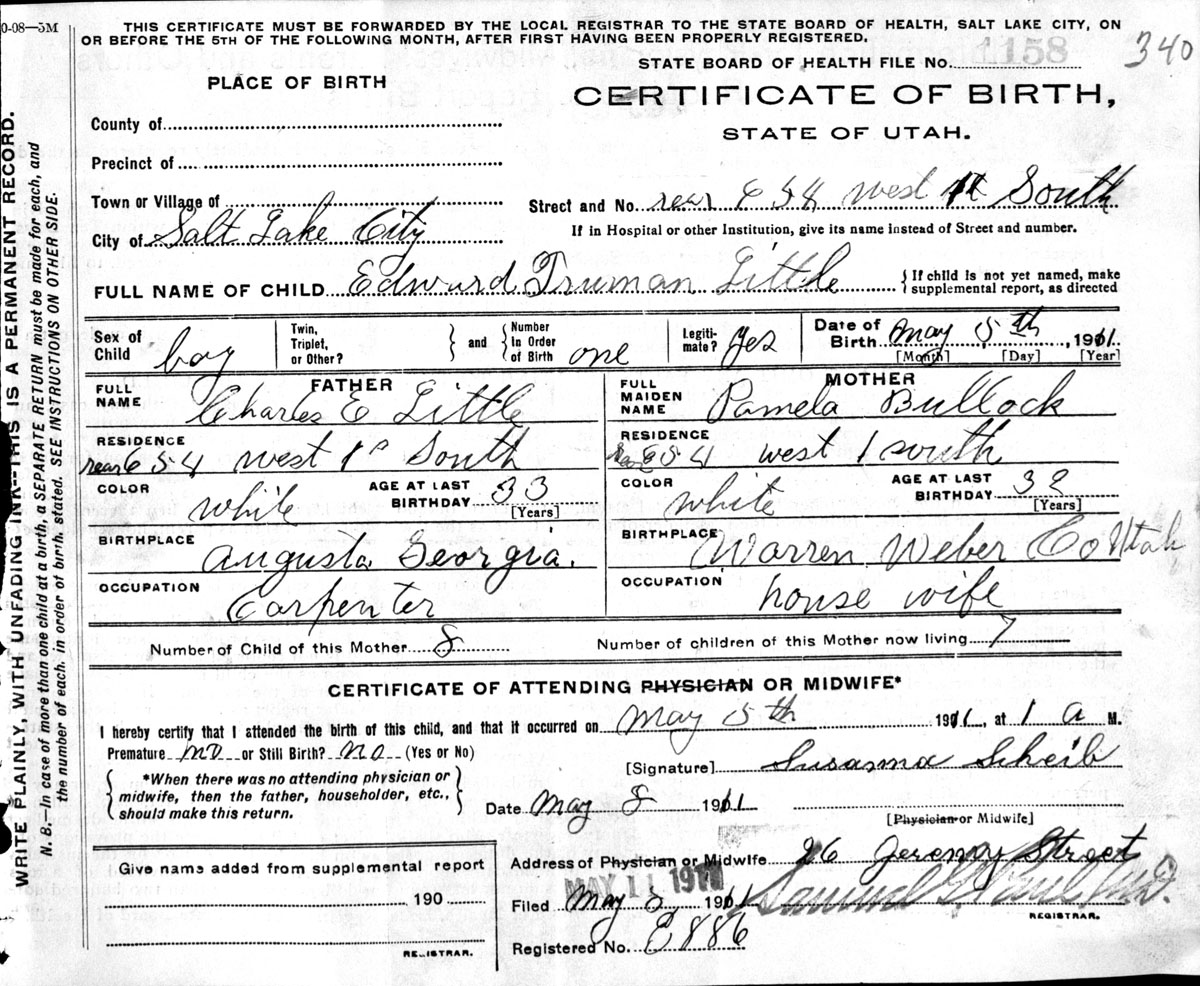 0-08—5M
THIS CERTIFICATE MUST BE FORWARDED BY THE LOCAL REGISTRAR TO THE STATE BOARD OF HEALTH, SALT LAKE CITY, ON
OR BEFORE THE 5TH OF THE FOLLOWING MONTH, AFTER FIRST HAVING BEEN PROPERLY REGISTERED.
STATE BOARD OF HEALTH FILE NO. 1158
340
PLACE OF BIRTH
CERTIFICATE OF BIRTH,
STATE OF UTAH.
County of
Precinct of
Town or Village of
Street and No. rear 654 west 1st South
If in Hospital or other Institution, give its name instead of Street and number.
City of Salt Lake City
FULL NAME OF CHILD Edward Truman Little
{If child is not yet named, make
supplemental report, as directed
Sex of Child boy
Twin, Triplet, or Other?
and
Number In Order of Birth one
Legiti-mate? Yes
Date of Birth May 5th, 1911.
[Month] [Day] [Year]
FATHER
FULL NAME Charles E Little
RESIDENCE rear 654 west 1st South
COLOR white AGE AT LAST BIRTHDAY 33 [Years]
BIRTHPLACE Augusta Georgia.
OCCUPATION Carpenter
MOTHER
FULL MAIDEN NAME Pamela Bullock
RESIDENCE rear 654 west 1 south
COLOR white AGE AT LAST BIRTHDAY 32 [Years]
BIRTHPLACE Warren Weber Co Utah
OCCUPATION house wife
Number of Child of this Mother 8
Number of children of this Mother now living 7
CERTIFICATE OF ATTENDING PHYSICIAN OR MIDWIFE*
I hereby certify that I attended the birth of this child, and that it occurred on May 5th 1911, at 1 a M.
Premature no or Still Birth? no (Yes or No)
[Signature] Susanna Scheib
{*When there was no attending physician or
midwife, then the father, householder, etc.,
should make this return.}
Date May 8 1911
[Physician or Midwife]
Give name added from supplemental report
190
REGISTRAR.
Address of Physician or Midwife 26 Jeremy Street
MAY 11 1911
Filed May 8 1911
REGISTRAR.
Registered No. E886
WRITE PLAINLY, WITH UNFADING INK—THIS IS A PERMANENT RECORD.
N. B.—In case of more than one child at a birth, a SEPARATE RETURN must be made for each, and
the number of each, in order of birth, stated. SEE INSTRUCTIONS ON OTHER SIDE.